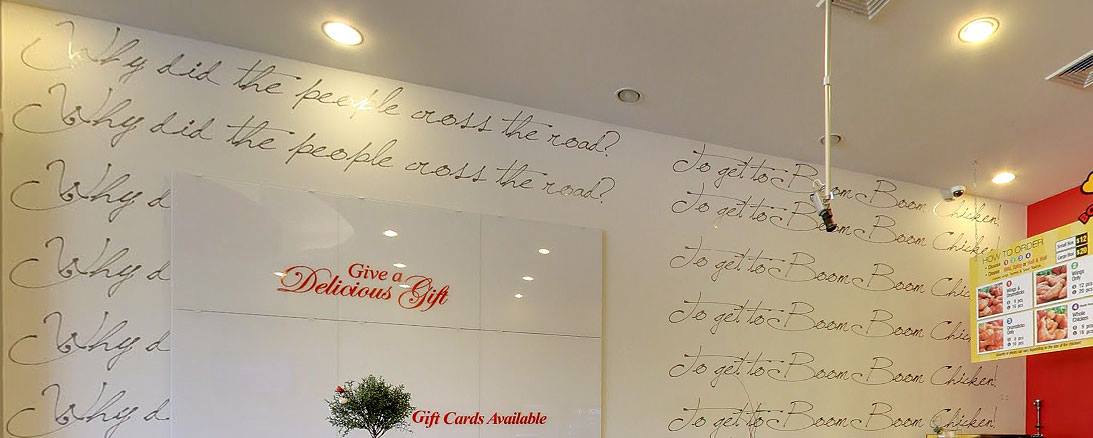 Why did the people cross the road?
Why did the people cross the road?
Why d
Why d
Why d
Why d
Give a
Delicious Gift
Gift Cards Available
To get to Boom Boom Chicken!
To get to Boom Boom Chicken!
To get to Boom Boom Chic
To get to Boom Boom Chicken!
To get to Boom Boom Chicken!
To get to Boom Boom Chicken!
HOW TO ORDER
Small Box $12
Large Box $20
Wings & Drumsticks
Wings Only
Drumsticks Only
Whole Chicken